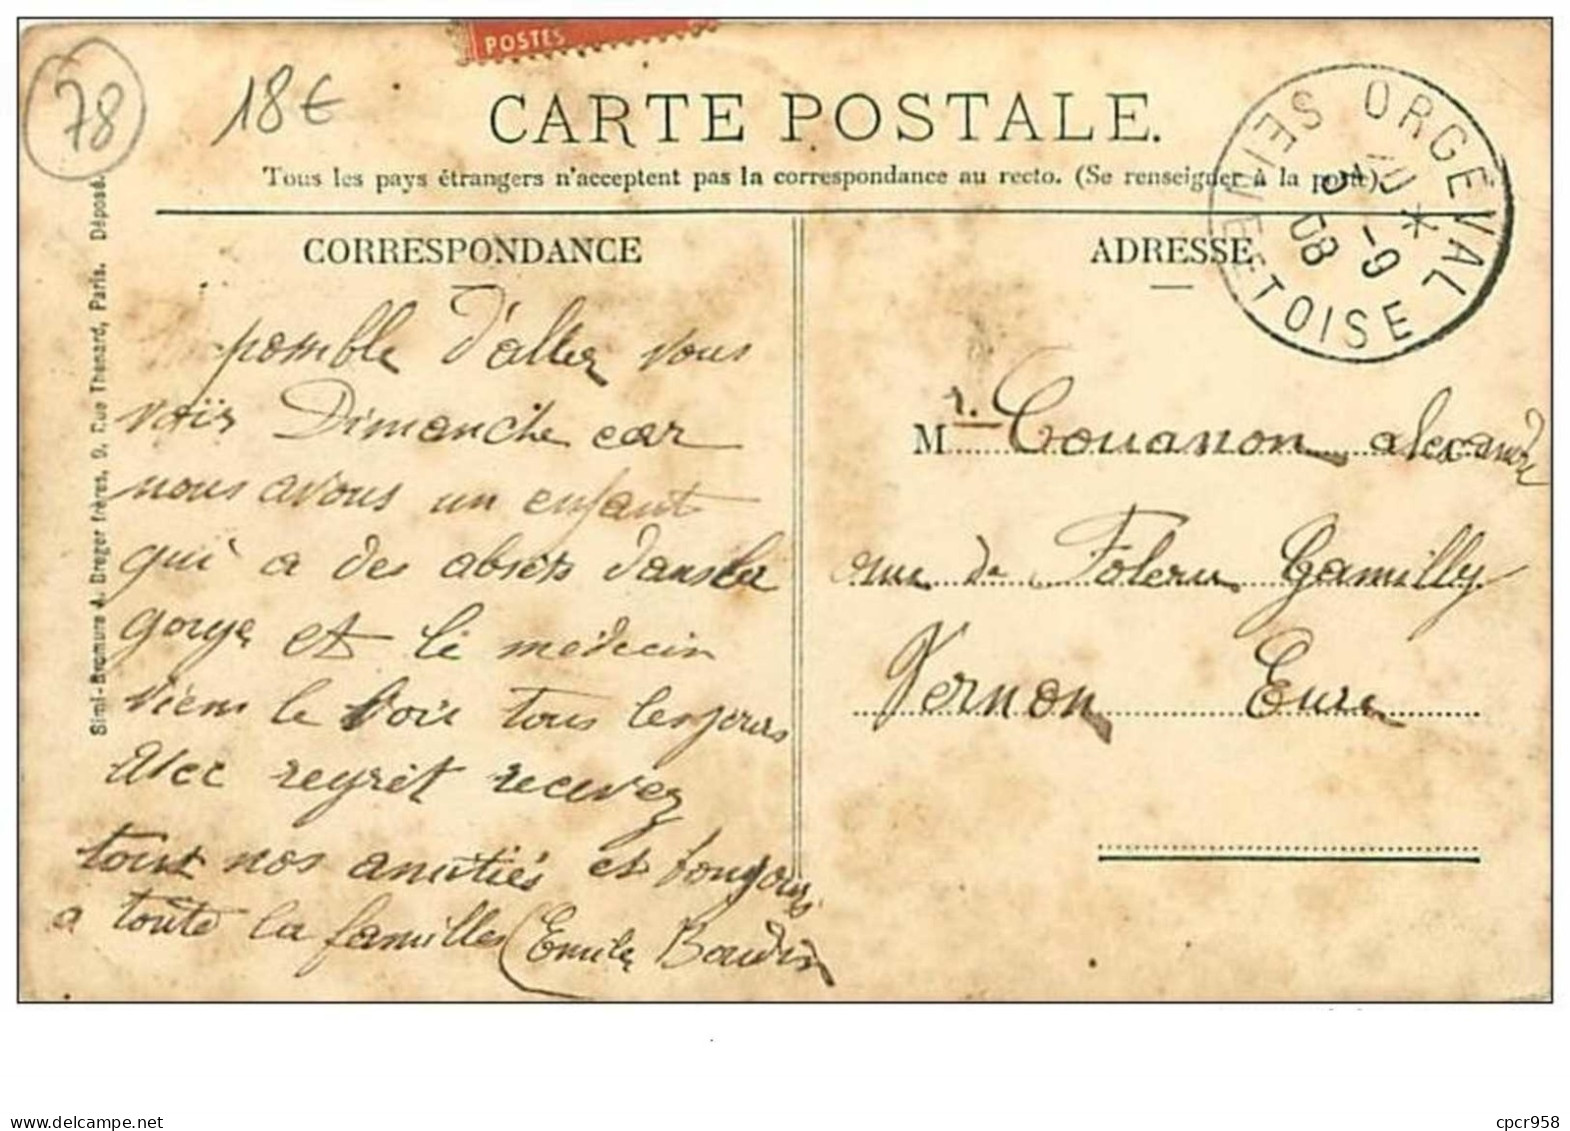 78
18€
POSTES
CARTE POSTALE.
Tous les pays étrangers n'acceptent pas la correspondance au recto. (Se renseigner à la poste).
ORGEVAL
SEINE ET OISE
5 - 9
08
Simi-Bromure A. Breger frères, 9, Rue Thenard, Paris. Déposé.
CORRESPONDANCE
ADRESSE
possible d'aller vous
voir Dimanche car
nous avons un enfant
qui a des absès dans la
gorge et le médecin
viens le voir tous les jours
Avec regrèt recevez
tout nos amitiés et bonjours
a toute la famille Emile Baudin
Mr. Couanon alexandre
rue de Gamilly
Vernon Eure
delcampe.net
cpcr958